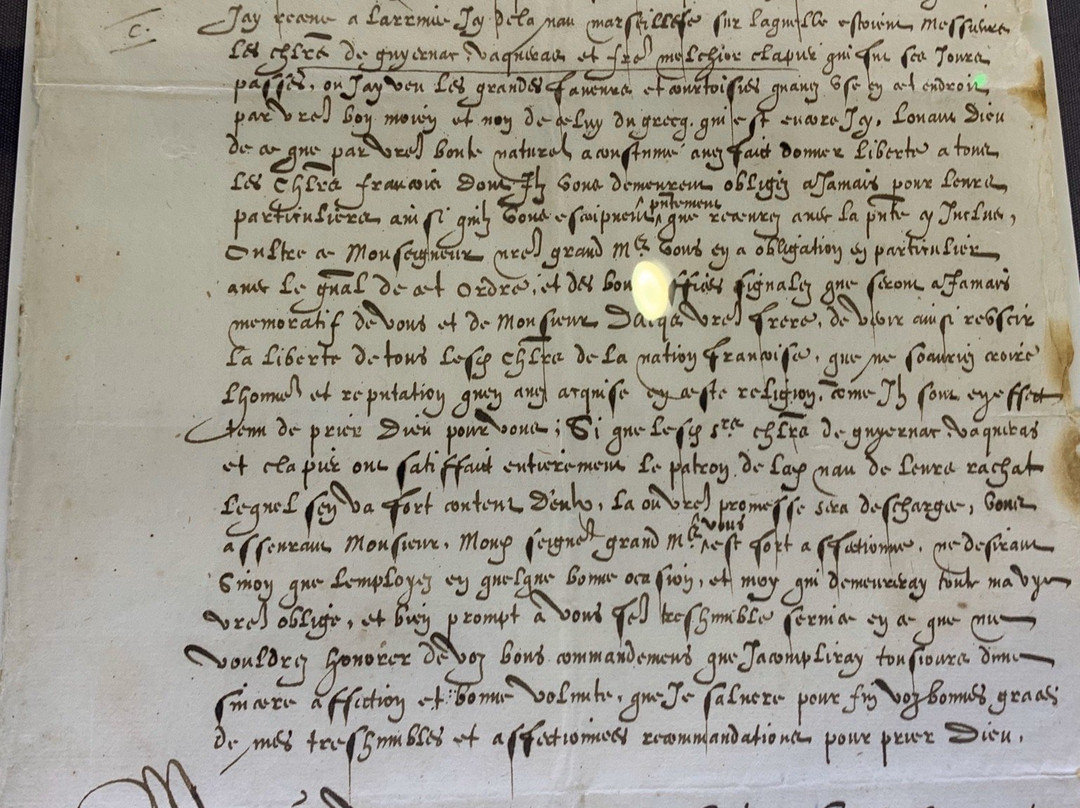 C.
Jay receue a larrivee Icy de la nau marseillese sur laquelle estoient Messieurs
les chlrs de guyernac, vaqueras et fre melchior clapier qui fut ces Jours
passes, ou Jay veu les grandes faveurs et courtoisies quavez use en cet endroit
par vre bon moien et non de celuy du grecq. qui est encore Icy, louant Dieu
de ce que par vre bonte naturel acoustume avez fait donner liberte a tous
les Chlrs francois dont Ilz vous demeurent obligez a Jamais pour leurs
particuliers ainsi quilz vous escripvent pntement que recevrez avec la pnte cy Incluse,
Oultre ce Monseigneur nre grand Mre vous en a obligation en particulier
avec le gnal de cet Ordre, et des bons offices signalez que seront a Jamais
memoratif de vous et de Monsieur Dacqs vre frere, de veoir ainsi reussir
la liberte de tous lesd chlrs de la nation francoise, que ne scauriez croire
lhonneur et reputation quen avez acquise en ceste religion, come Ilz sont en effect
tenu de prier Dieu pour vous; Si que lesd srs chlrs de guyernac, vaqueras
et clapier ont satisffait entierement le patron de lad nau de leurs rachat
lequel sen va fort content deulx, la ou vre promesse sera deschargee, vous
asseurant Monsieur, Mond seigner grand Mre vous est fort affectionne, ne desirant
Sinon que lemployez en quelque bonne ocasion, et moy qui demeureray toute ma vye
vre oblige, et bien prompt a vous fe treshumble service en ce que me
vouldrez honorer de voz bons commandemens que Jacompliray tousiours dune
sincere affection et bonne volunte, que Je salueré pour fin voz bonnes graces
de mes treshumbles et affectionnees recommandations pour prier Dieu.